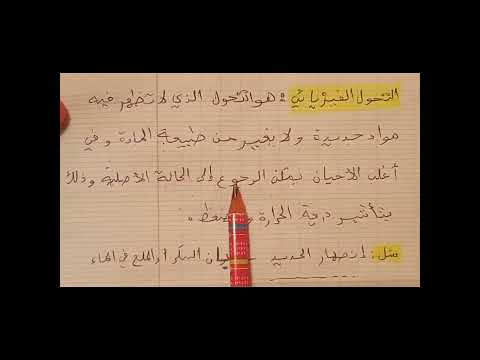 التحول الفيزيائي : هو التحول الذي لا تظهر فيه
مواد جديدة ولا يغير من طبيعة المادة وفي
أغلب الأحيان يمكن الرجوع إلى الحالة الأصلية وذلك
بتأثير درجة الحرارة
مثل : انصهار الحديد السكر أو الملح في الماء